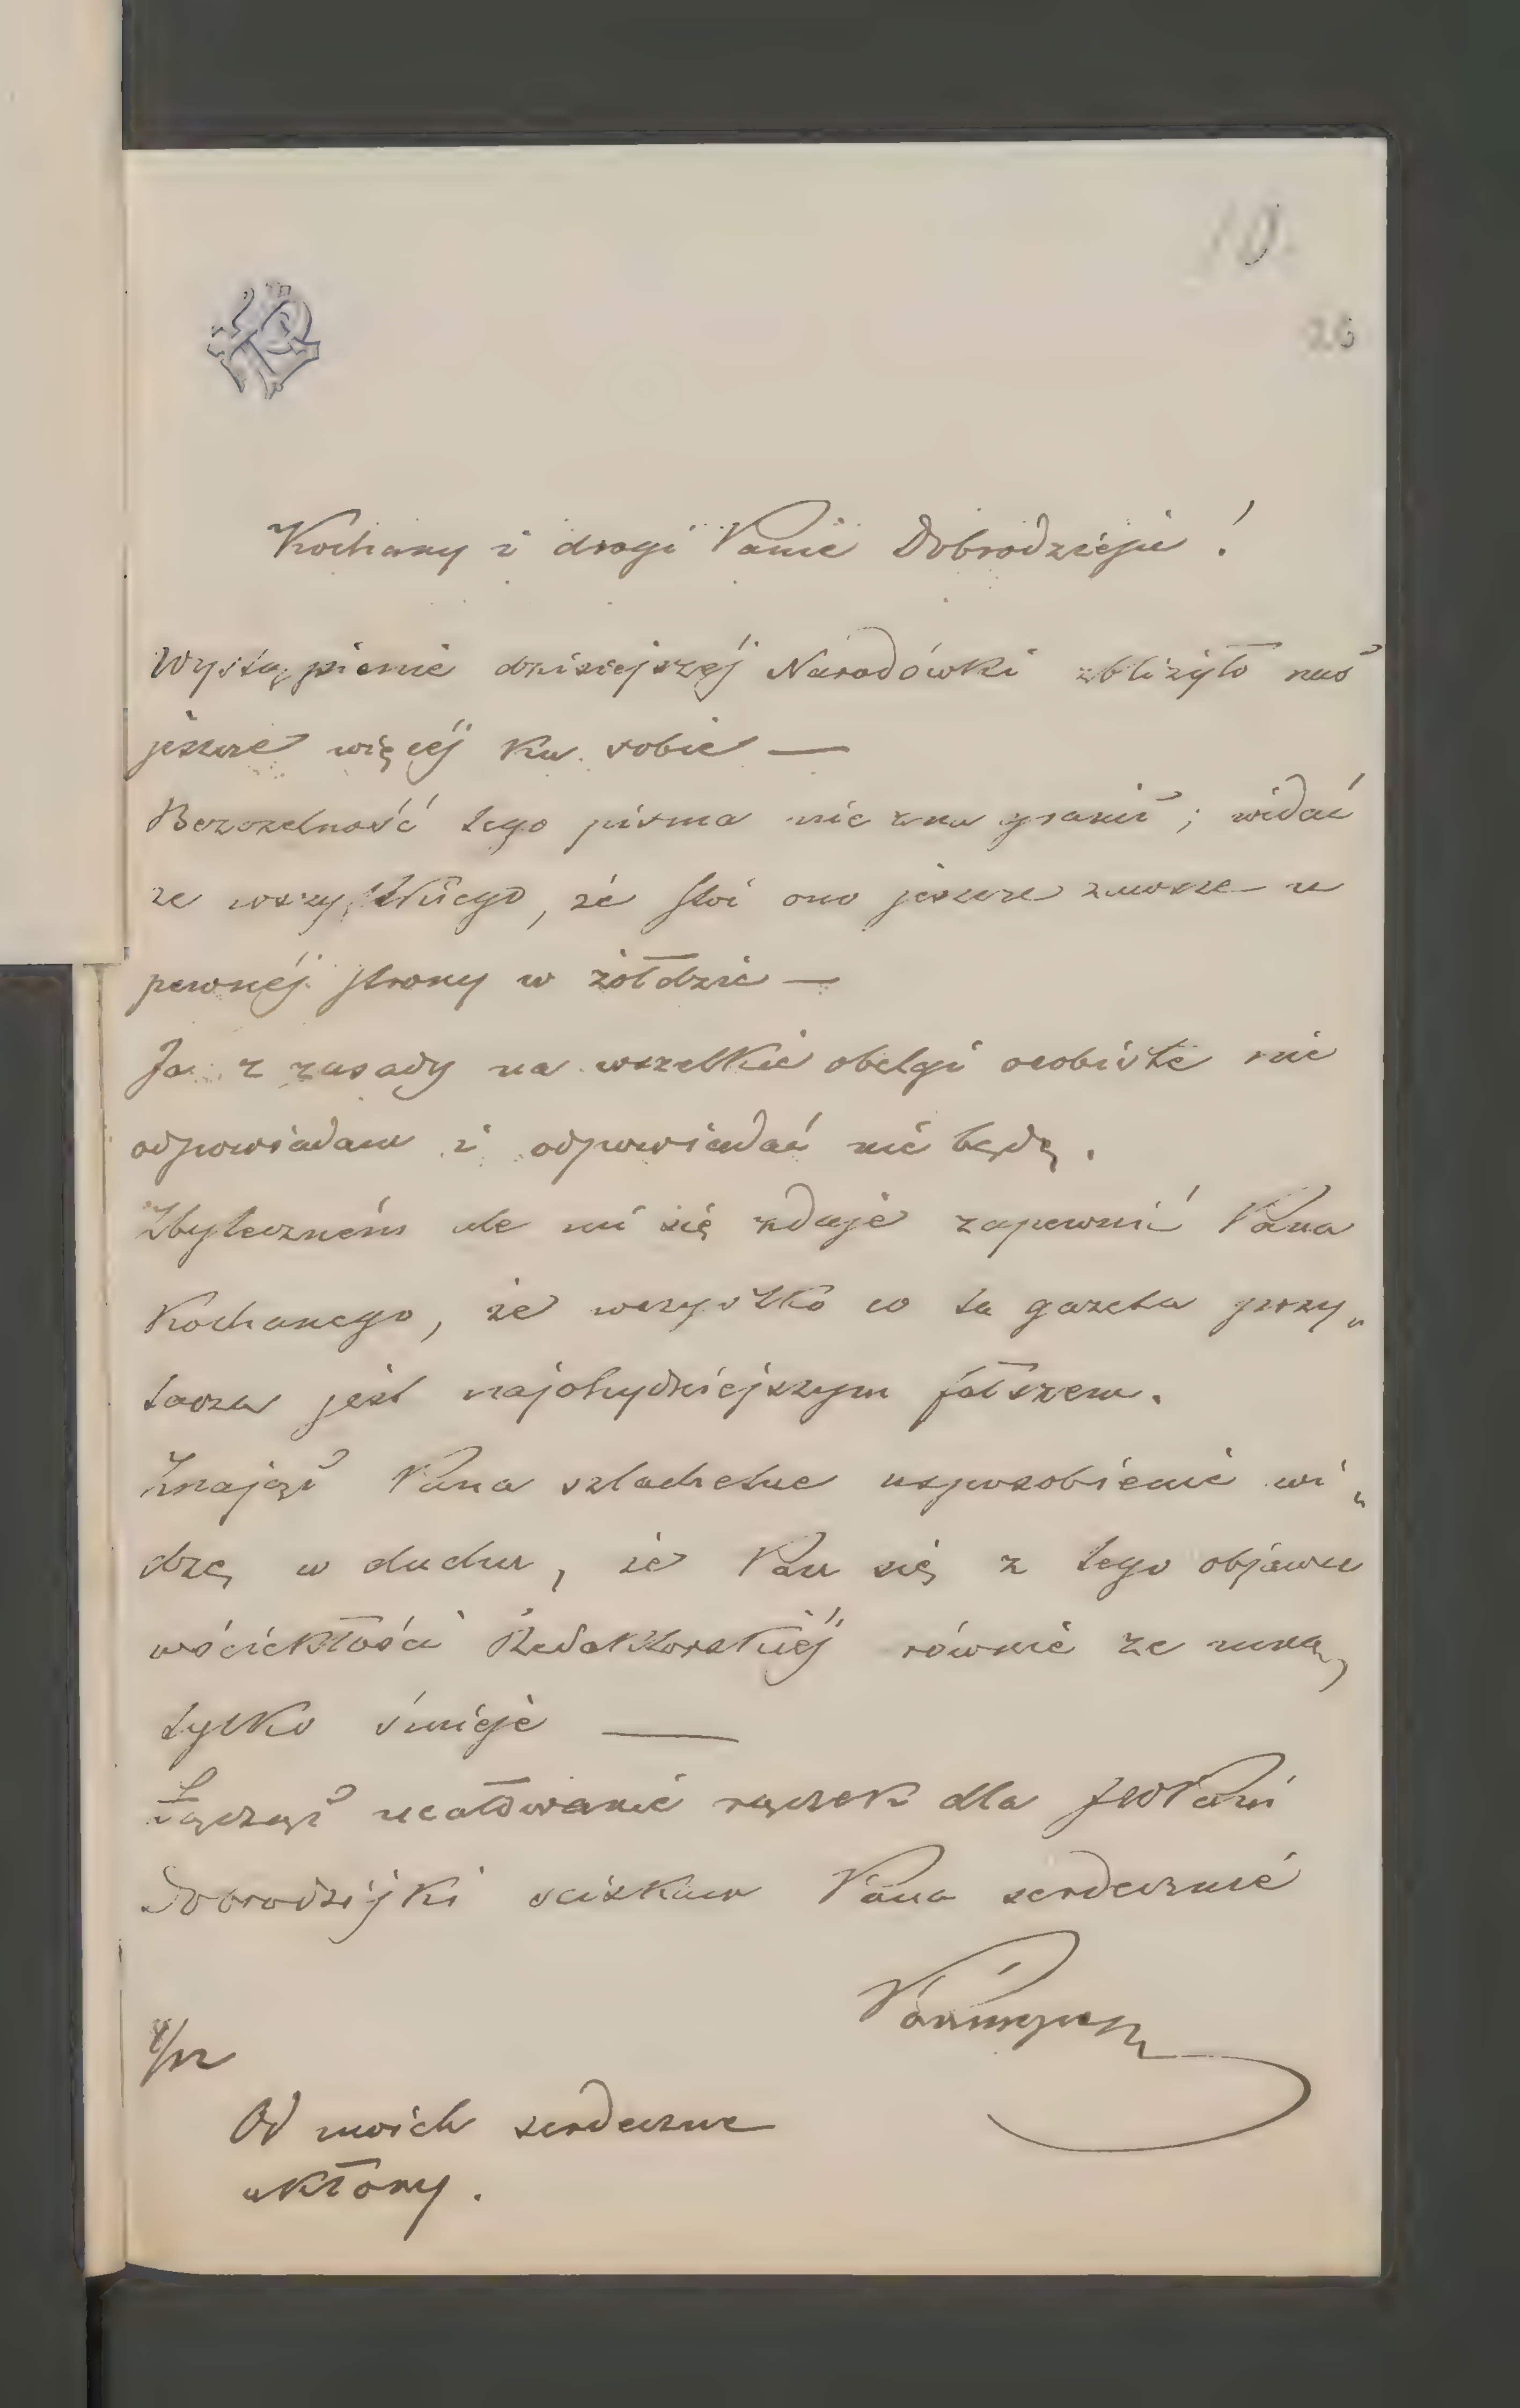 10.
26
Kochany i drogi Panie Dobrodzieju!
Wystąpienie dzisiejszéj Narodówki zbliżyło nas
jeszcze więcéj ku sobie —
Bezczelność tego pisma nie zna granic; widać
ze wszystkiego, że stoi ono jeszcze zawsze u
pewnéj strony w żołdzie —
Ja z zasady na wszelkie obelgi osobiste nie
odpowiadam i odpowiadać nie będę.
Zbyteczném ale mi się zdaje zapewnić Pana
Kochanego, że wszystko co ta gazeta przy„
tacza jest najohydniejszym fałszem.
Znając Pana szlachetne usposobienie wi„
dzę w duchu, że Pan się z tego objawu
wściekłości Redaktorskiéj równie ze mną,
tylko śmieje —
Łącząc ucałowanie rączek dla JWPani
Dobrodzijki sciskam Pana serdecznie
/12
Od moich serdeczne
ukłony.